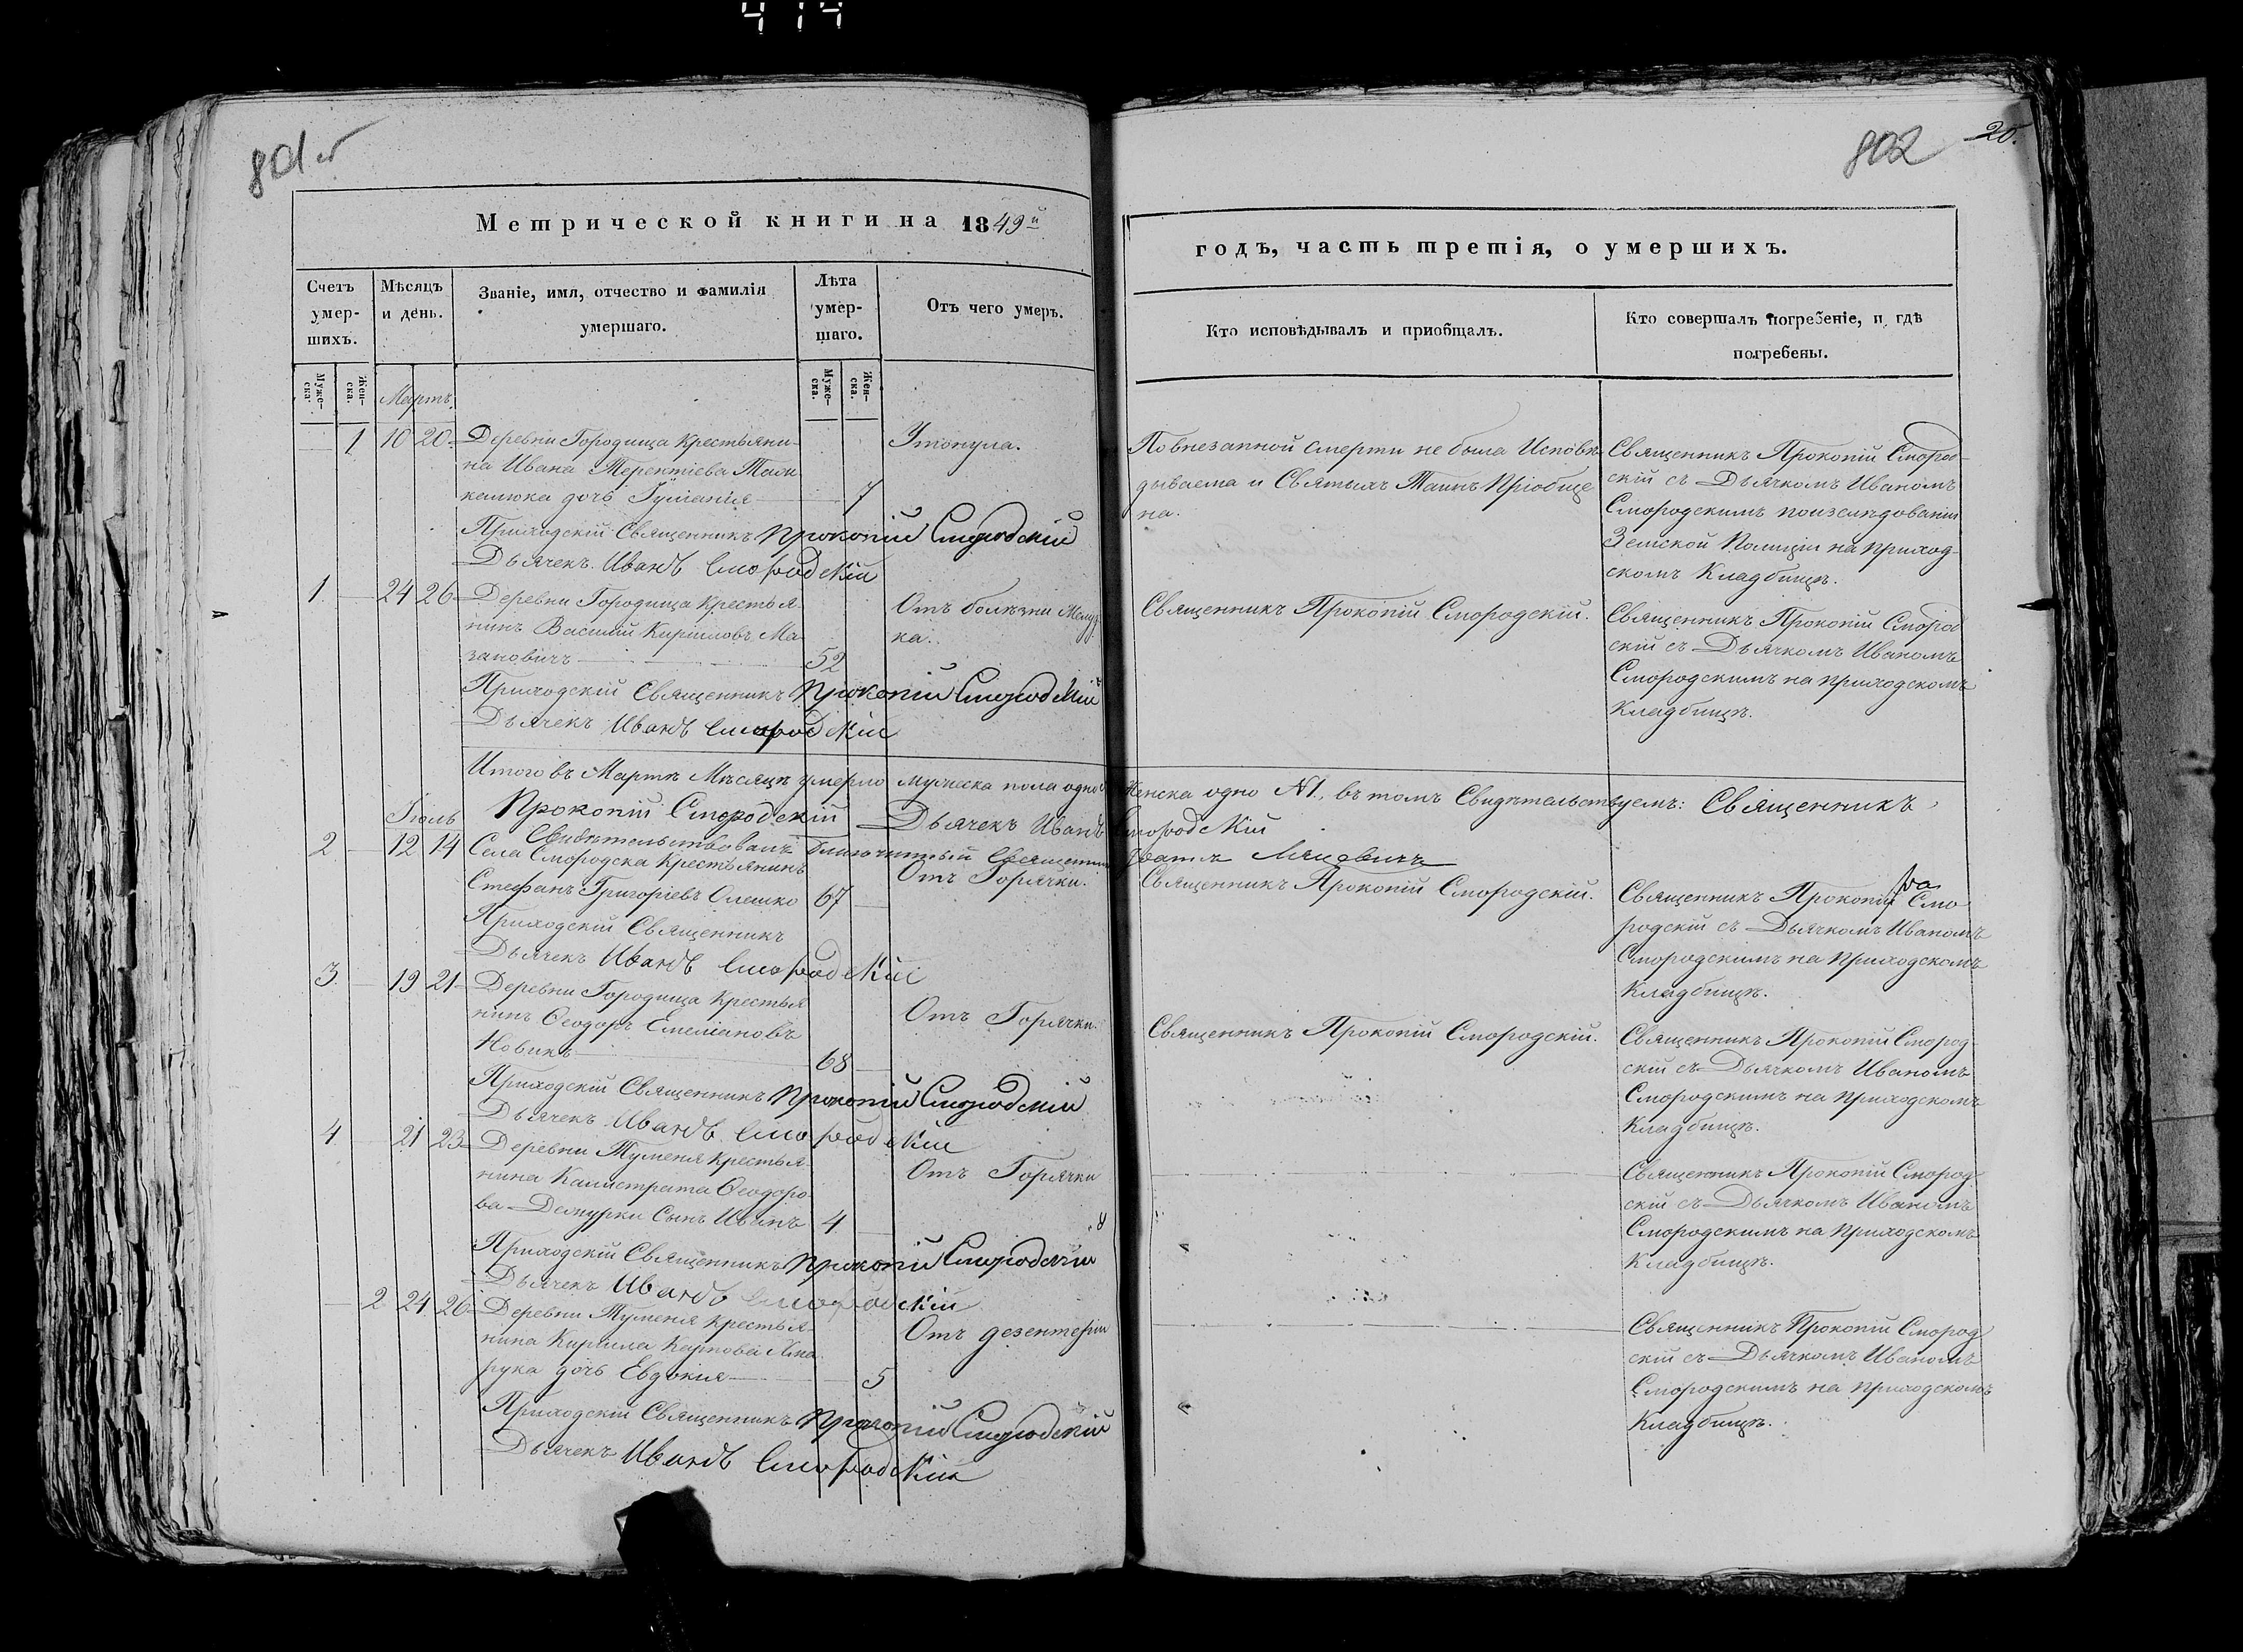 414
801 об
802
20.
Метрической книги на 1849й
годъ, часть третія, о умершихъ.
Счетъ умер-шихъ.
Мѣсяцъ и день.
Званіе, имя, отчество и фамилія
умершаго.
Лѣта умер-шаго.
Отъ чего умеръ.
Кто исповѣдывалъ и приобщалъ.
Кто совершалъ погребеніе, и гдѣ
погребены.
Муже-ска.
Жен-ска.
Муже-ска.
Жен-ска.
Мартъ.
1 10 20
Деревни Городища Крестьяни-
на Ивана Терентіева
дочь
7
Утонула.
По внезапной смерти не была Исповѣ-
дываема и Святыхъ Таинъ Пріобще
на.
Священникъ Прокопій Смород-
скій съ Дьячкомъ Иваномъ
Смородскимъ по изслѣдованіи
Земской Полиціи на приход-
скомъ Кладбищѣ.
Приходскій Священникъ Прокопій Смородскій
Дьячекъ Иванъ Смородскій
1. 24 26
Деревни Городища Крестья-
нинъ Василій Кирилловъ Ма-
зановичъ
52
Отъ болѣзни
Священникъ Прокопій Смородскій.
Священникъ Прокопій Смород
скій съ Дьячкомъ Иваномъ
Смородскимъ на приходскомъ
Кладбищѣ.
Приходскій Священникъ Прокопій Смородскій
Дьячекъ Иванъ Смородскій
Итого въ Мартѣ Мѣсяцѣ умерло мужеска пола одно Женска одно №1, въ томъ Свидѣтельствуемъ: Священникъ
Прокопій Смородскій Дьячекъ Иванъ Смородскій
Свидѣтельствовалъ Благочинный Священникъ
Іюль
2 12 14
Села Смородска Крестьянинъ
Стефанъ Григоріевъ Олешко
67
Отъ Горячки.
Священникъ Прокопій Смородскій.
Священникъ Прокопій Смо
родскій съ Дьячкомъ Иваномъ
Смородскимъ на Приходскомъ
Кладбищѣ.
Приходскій Священникъ
Дьячекъ Иванъ Смородскій
3. 19 21
Деревни Городища Крестья
нинъ Ѳеодоръ Емеліановъ
Новикъ
68
Отъ Горячки.
Священникъ Прокопій Смородскій.
Священникъ Прокопій Смород-
скій съ Дьячкомъ Иваномъ
Смородскимъ на Приходскомъ
Кладбищѣ.
Приходскій Священникъ Прокопій Смородскій
Дьячекъ Иванъ Смородскій
4. 21 23
Деревни Туменя Крестья-
нина Калистрата Ѳеодоро-
ва Сынъ Иванъ
4
Отъ Горячки
Священникъ Прокопій Смород-
скій съ Дьячкомъ Иваномъ
Смородскимъ на Приходскомъ
Кладбищѣ.
Приходскій Священникъ Прокопій Смородскій
Дьячекъ Иванъ Смородскій
2 24 26
Деревни Туменя Крестья-
нина Кирилла Карпова
дочь Евдокия
5
Отъ дезентеріи
Священникъ Прокопій Смород
скій съ Дьячкомъ Иваномъ
Смородскимъ на приходскомъ
Кладбищѣ.
Приходскій Священникъ Прокопій Смородскій
Дьячекъ Иванъ Смородскій